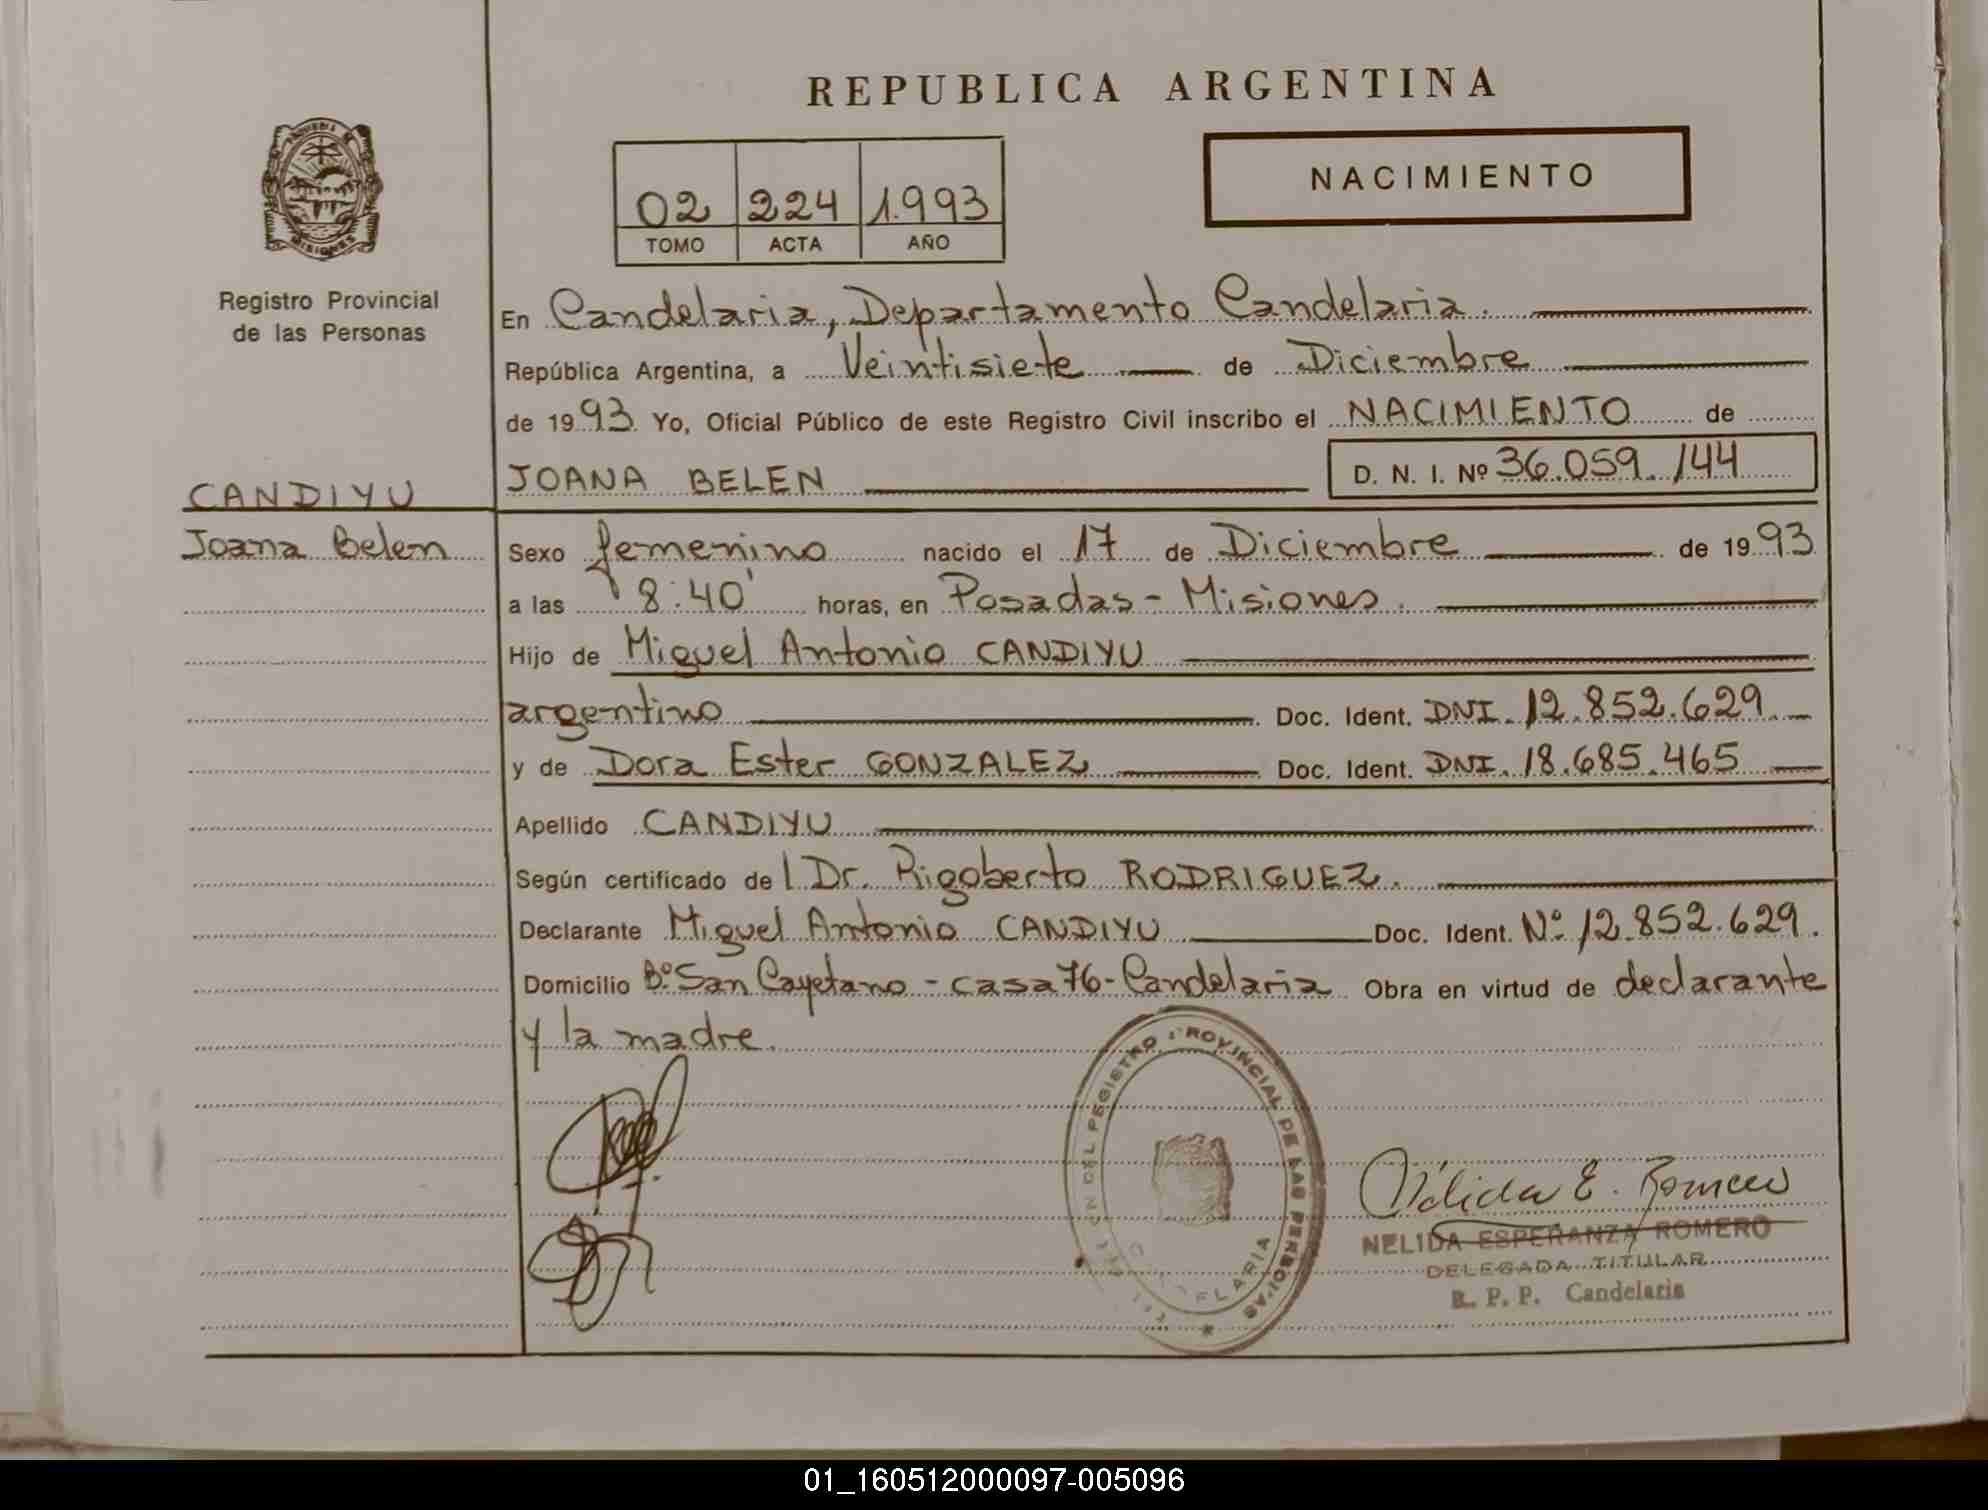 REPUBLICA ARGENTINA
NACIMIENTO
02 224 1.993
TOMO ACTA AÑO
MISIONES
Registro Provincial
de las Personas
En Candelaria, Departamento Candelaria.
República Argentina, a Veintisiete de Diciembre
de 1993 Yo, Oficial Público de este Registro Civil inscribo el NACIMIENTO de
JOANA BELEN D. N. I. Nº 36.059.144
CANDIYU
Joana Belen
Sexo femenino nacido el 17 de Diciembre de 1993
a las 8:40' horas, en Posadas - Misiones.
Hijo de Miguel Antonio CANDIYU
argentino Doc. Ident. DNI. 12.852.629.
y de Dora Ester GONZALEZ Doc. Ident. DNI. 18.685.465
Apellido CANDIYU
Según certificado del Dr. Rigoberto RODRIGUEZ.
Declarante Miguel Antonio CANDIYU Doc. Ident. Nº 12.852.629.
Domicilio Bº San Cayetano - casa 76 - Candelaria Obra en virtud de declarante
y la madre.
DEL REGISTRO PROVINCIAL DE LAS PERSONAS
Nélida E. Romero
NELIDA ESPERANZA ROMERO
DELEGADA TITULAR
R. P. P. Candelaria
01_160512000097-005096